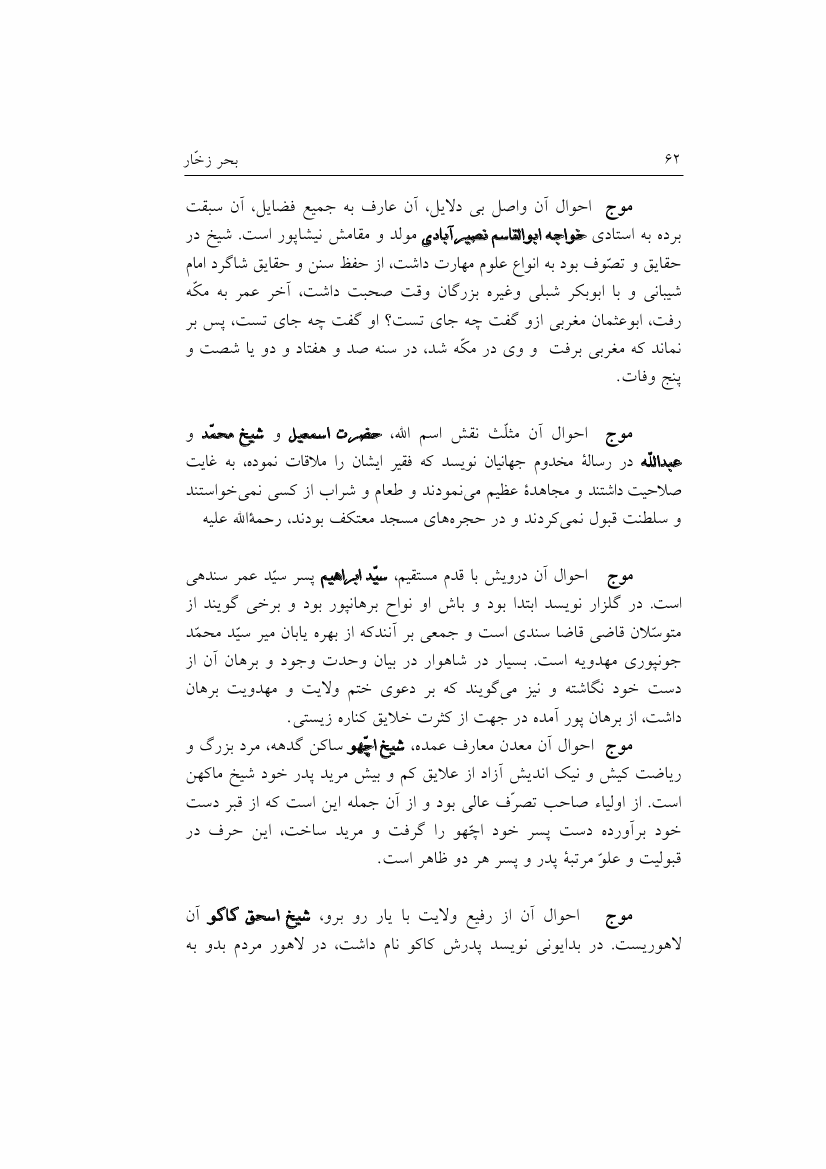 ۶۲ بحر زخّار
موج احوال آن واصل بی دلایل، آن عارف به جمیع فضایل، آن سبقت
برده به استادی خواجه ابوالقاسم نصیرآبادی مولد و مقامش نیشاپور است. شیخ در
حقایق و تصّوف بود به انواع علوم مهارت داشت، از حفظ سنن و حقایق شاگرد امام
شیبانی و با ابوبکر شبلی وغیره بزرگان وقت صحبت داشت، آخر عمر به مکّه
رفت، ابوعثمان مغربی ازو گفت چه جای تست؟ او گفت چه جای تست، پس بر
نماند که مغربی برفت و وی در مکّه شد، در سنه صد و هفتاد و دو یا شصت و
پنج وفات.
موج احوال آن مثلّث نقش اسم الله، حضرت اسمعیل و شیخ محمّد و
عبداللّه در رسالهٔ مخدوم جهانیان نویسد که فقیر ایشان را ملاقات نموده، به غایت
صلاحیت داشتند و مجاهدهٔ عظیم می‌نمودند و طعام و شراب از کسی نمی‌خواستند
و سلطنت قبول نمی‌کردند و در حجره‌های مسجد معتکف بودند، رحمةالله علیه
موج احوال آن درویش با قدم مستقیم، سیّد ابراهیم پسر سیّد عمر سندهی
است. در گلزار نویسد ابتدا بود و باش او نواح برهانپور بود و برخی گویند از
متوسّلان قاضی قاضا سندی است و جمعی بر آنندکه از بهره یابان میر سیّد محمّد
جونپوری مهدویه است. بسیار در شاهوار در بیان وحدت وجود و برهان آن از
دست خود نگاشته و نیز می‌گویند که بر دعوی ختم ولایت و مهدویت برهان
داشت، از برهان پور آمده در جهت از کثرت خلایق کناره زیستی.
موج احوال آن معدن معارف عمده، شیخ اچّهو ساکن گدهه، مرد بزرگ و
ریاضت کیش و نیک اندیش آزاد از علایق کم و بیش مرید پدر خود شیخ ماکهن
است. از اولیاء صاحب تصرّف عالی بود و از آن جمله این است که از قبر دست
خود برآورده دست پسر خود اچّهو را گرفت و مرید ساخت، این حرف در
قبولیت و علوّ مرتبهٔ پدر و پسر هر دو ظاهر است.
موج احوال آن از رفیع ولایت با یار رو برو، شیخ اسحق کاکو آن
لاهوریست. در بدایونی نویسد پدرش کاکو نام داشت، در لاهور مردم بدو به